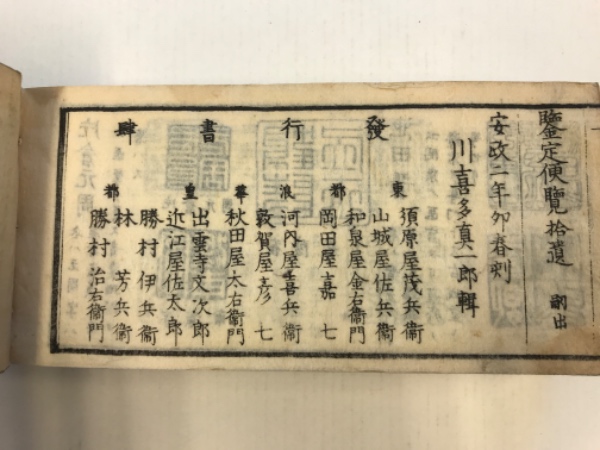 鑒定便覧拾遺 嗣出
安政二年卯春刻
川喜多真一郎輯
發行書肆
東都
須原屋茂兵衞
山城屋佐兵衞
和泉屋金右衞門
岡田屋嘉七
浪華
河内屋喜兵衞
敦賀屋彦七
秋田屋太右衞門
皇都
出雲寺文次郎
近江屋佐太郎
勝村伊兵衞
林芳兵衞
勝村治右衞門